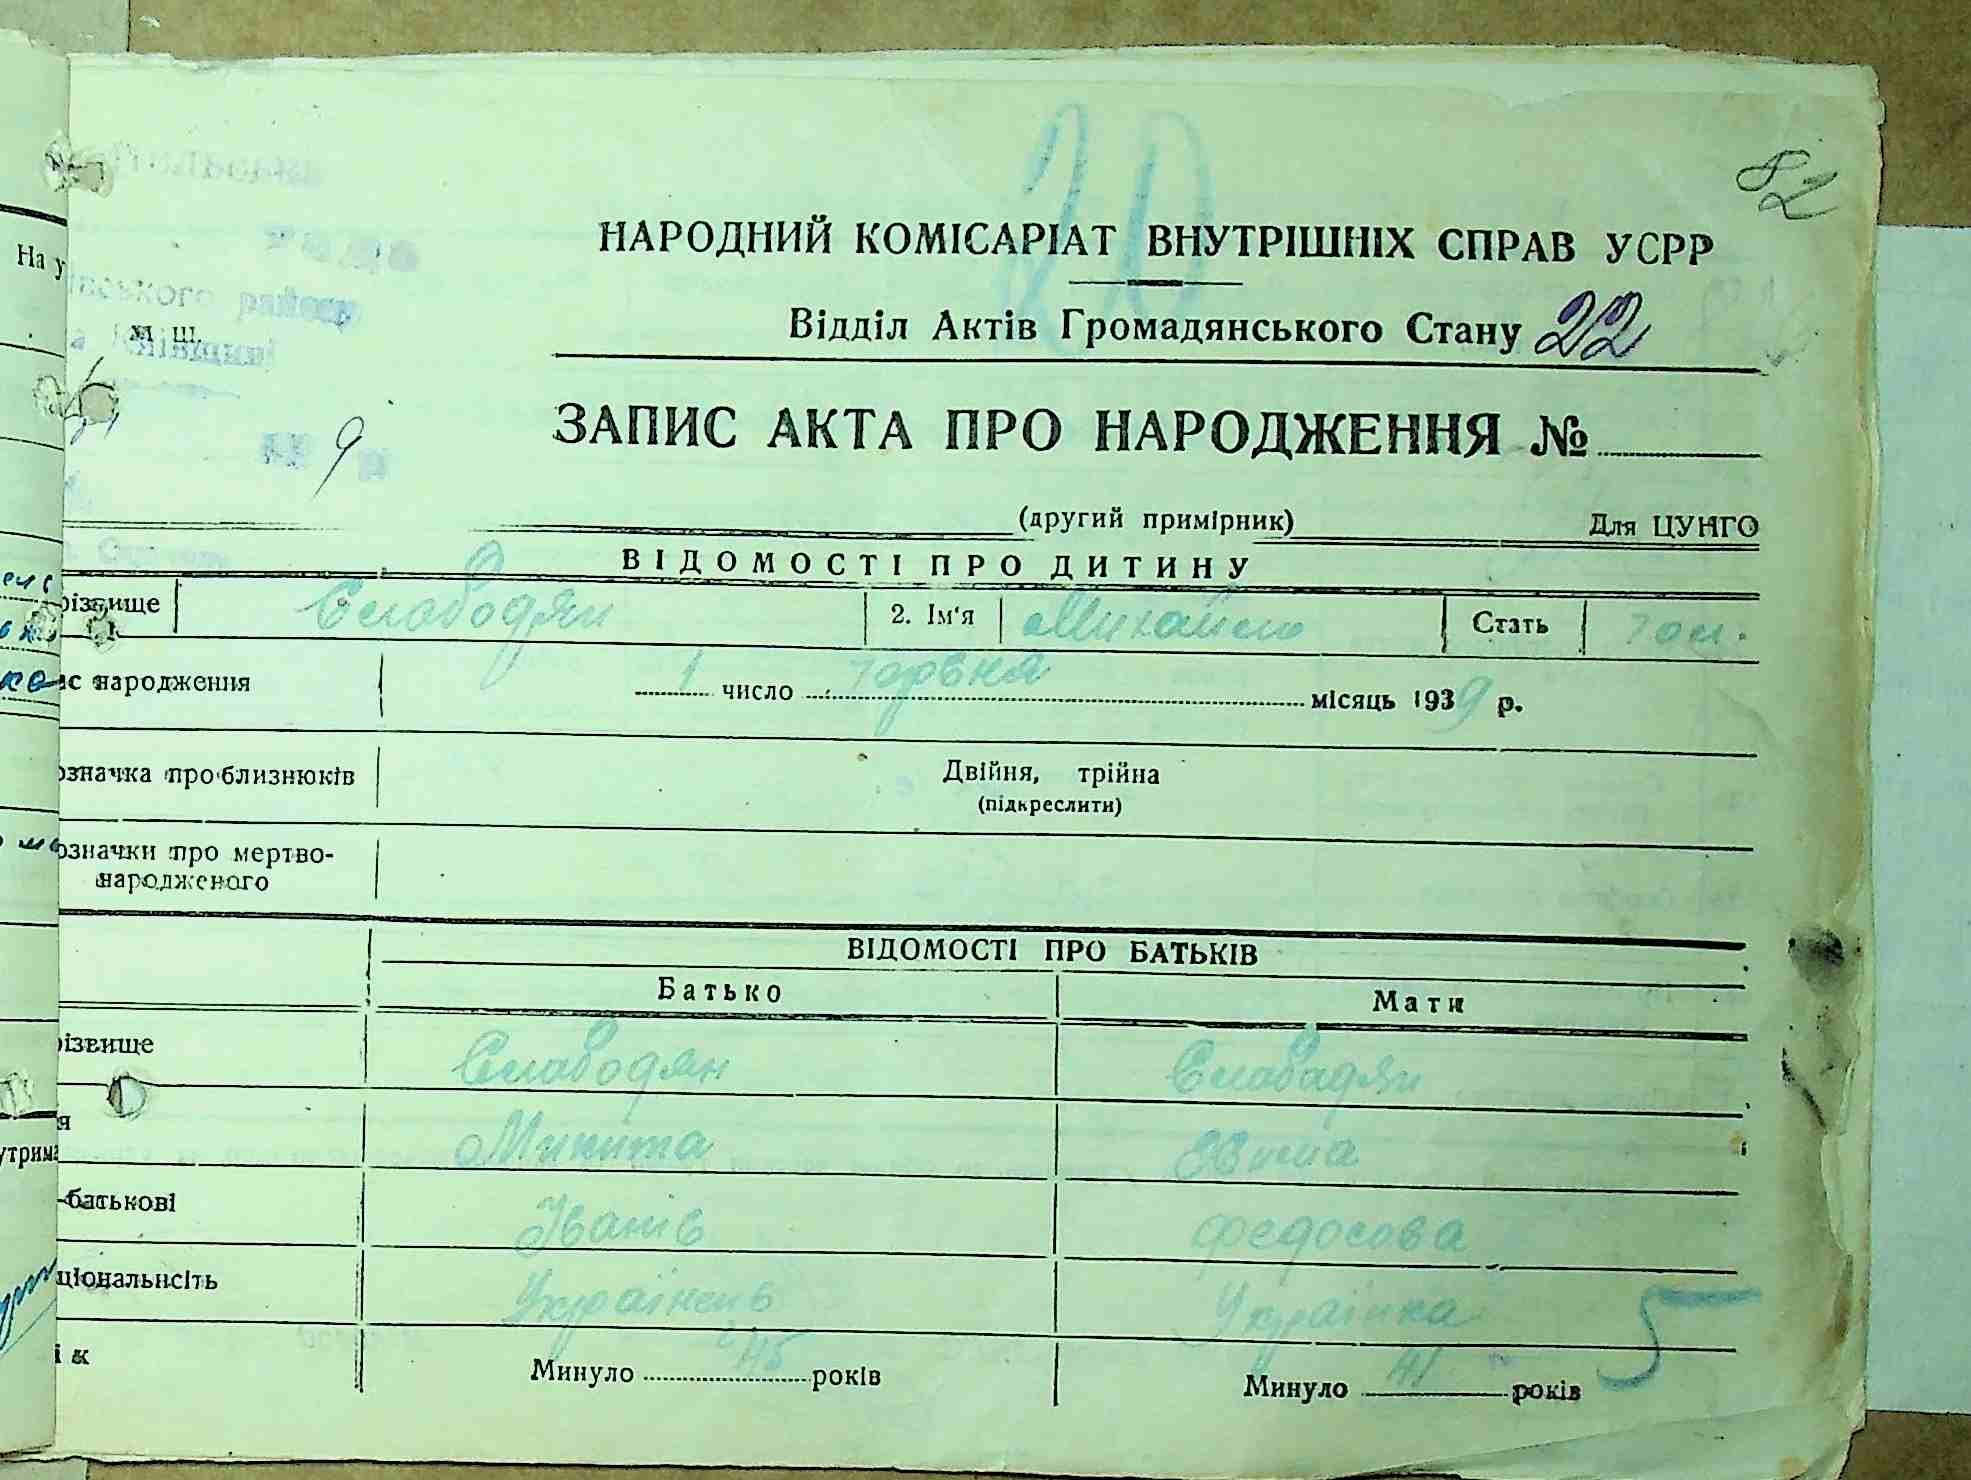 82
20
НАРОДНИЙ КОМІСАРІАТ ВНУТРІШНІХ СПРАВ УСРР
Відділ Актів Громадянського Стану 22
ЗАПИС АКТА ПРО НАРОДЖЕННЯ №
(другий примірник) Для ЦУНГО
ВІДОМОСТІ ПРО ДИТИНУ
різвище Слободян 2. Ім'я Михайло Стать чол.
ас народження 1 число місяць 1939 р.
означка про близнюків Двійня, трійна
(підкреслити)
означки про мертво-
народженого
ВІДОМОСТІ ПРО БАТЬКІВ
Батько Мати
різвище Слабодян Слабадян
я Микита
-батькові Іванів Федосова
ціональність Українець Українка
ік Минуло 45 років Минуло 41 років
5